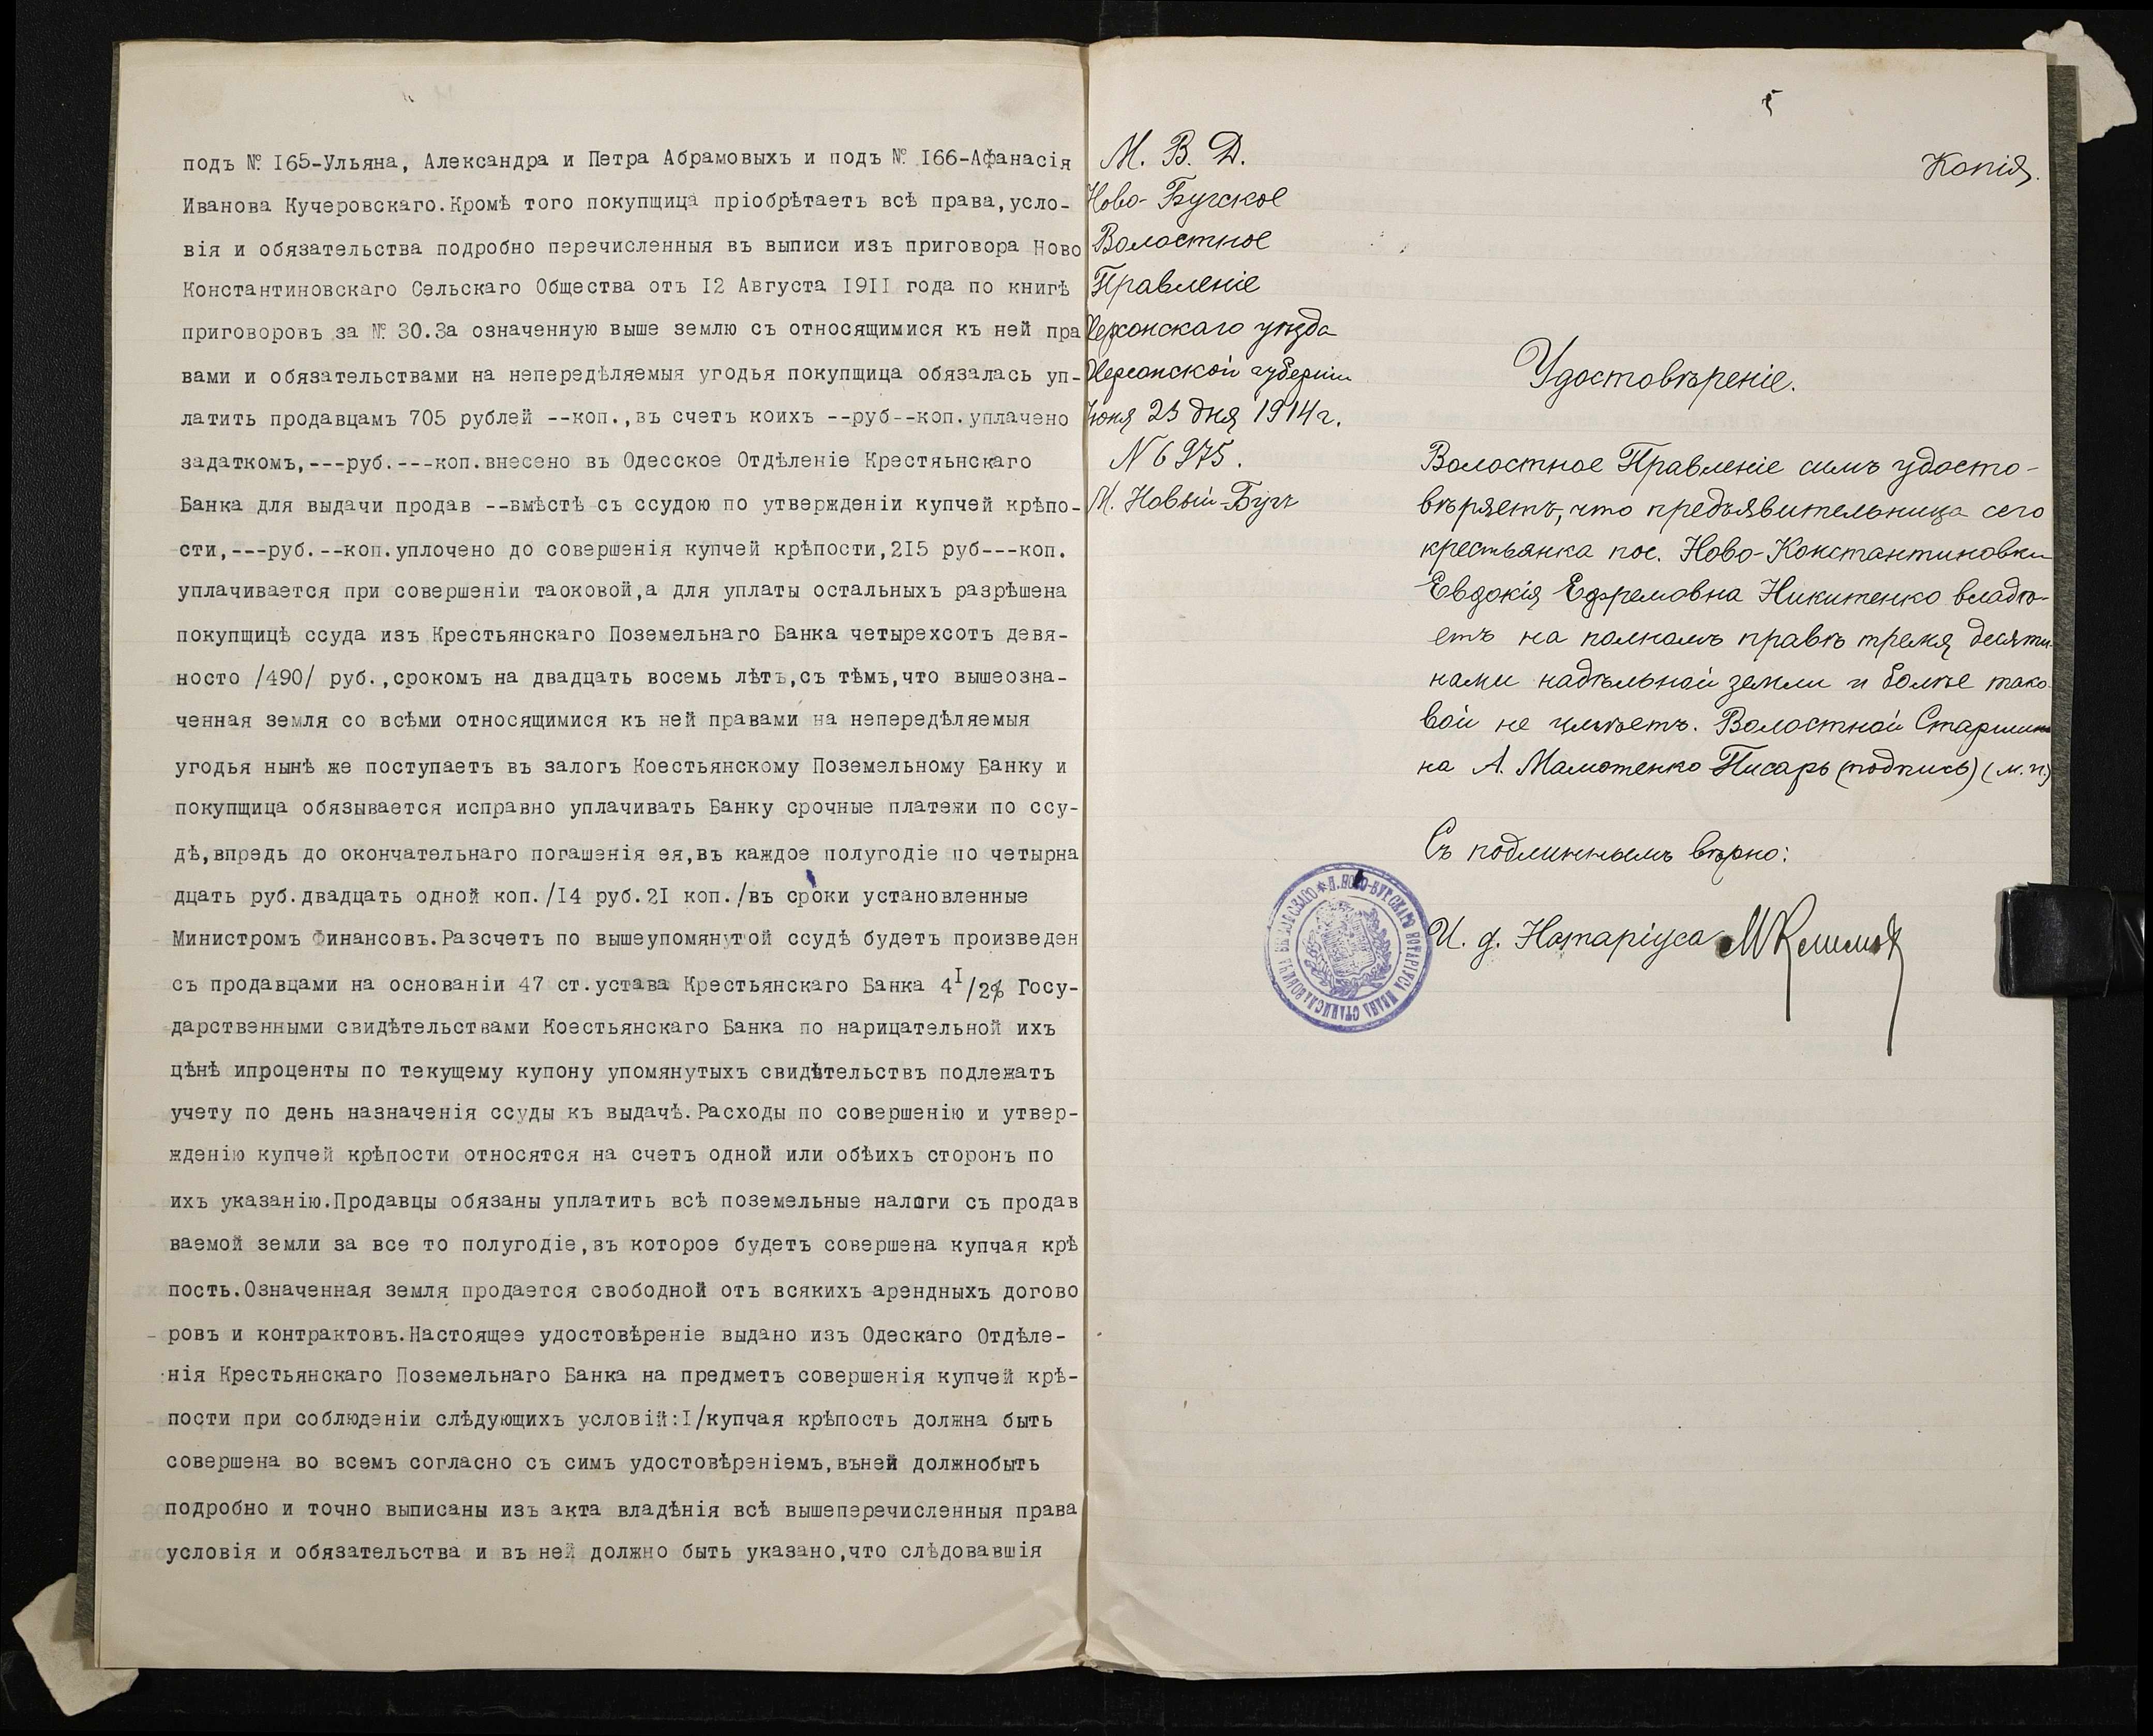 подъ № I65-Ульяна, Александра и Петра Абрамовыхъ и подъ № I66-Афанасія
Иванова Кучеровскаго.Кромѣ того покупщица пріобрѣтаетъ всѣ права,усло-
вія и обязательства подробно перечисленныя въ выписи изъ приговора Ново
Константиновскаго Сельскаго Общества отъ I2 Августа I9II года по книгѣ
приговоровъ за № 30.За означенную выше землю съ относящимися къ ней пра
вами и обязательствами на непередѣляемыя угодья покупщица обязалась уп-
латить продавцамъ 705 рублей --коп.,въ счетъ коихъ --руб--коп.уплачено
задаткомъ,---руб.---коп.внесено въ Одесское Отдѣленіе Крестяьнскаго
Банка для выдачи продав --вмѣстѣ съ ссудою по утвержденіи купчей крѣпо-
сти,---руб.--коп.уплочено до совершенія купчей крѣпости,2I5 руб---коп.
уплачивается при совершеніи таоковой,а для уплаты остальныхъ разрѣшена
покупщицѣ ссуда изъ Крестьянскаго Поземельнаго Банка четырехсотъ девя-
носто /490/ руб.,срокомъ на двадцать восемь лѣтъ,съ тѣмъ,что вышеозна-
ченная земля со всѣми относящимися къ ней правами на непередѣляемыя
угодья нынѣ же поступаетъ въ залогъ Коестьянскому Поземельному Банку и
покупщица обязывается исправно уплачивать Банку срочные платежи по ссу-
дѣ,впредь до окончательнаго погашенія ея,въ каждое полугодіе по четырна
дцать руб.двадцать одной коп./I4 руб.2I коп./въ сроки установленные
Министромъ Финансовъ.Разсчетъ по вышеупомянутой ссудѣ будетъ произведен
съ продавцами на основаніи 47 ст.устава Крестьянскаго Банка 4I/2% Госу-
дарственными свидѣтельствами Коестьянскаго Банка по нарицательной ихъ
цѣнѣ ипроценты по текущему купону упомянутыхъ свидѣтельствъ подлежатъ
учету по день назначенія ссуды къ выдачѣ.Расходы по совершенію и утвер-
жденію купчей крѣпости относятся на счетъ одной или обѣихъ сторонъ по
ихъ указанію.Продавцы обязаны уплатить всѣ поземельные налоги съ продав
ваемой земли за все то полугодіе,въ которое будетъ совершена купчая крѣ
пость.Означенная земля продается свободной отъ всякихъ арендныхъ догово
ровъ и контрактовъ.Настоящее удостовѣреніе выдано изъ Одескаго Отдѣле-
нія Крестьянскаго Поземельнаго Банка на предметъ совершенія купчей крѣ-
пости при соблюденіи слѣдующихъ условій:I/купчая крѣпость должна быть
совершена во всемъ согласно съ симъ удостовѣреніемъ,въней должнобыть
подробно и точно выписаны изъ акта владѣнія всѣ вышеперечисленныя права
условія и обязательства и въ ней должно быть указано,что слѣдовавшія
5
Копія.
М. В. Д.
Ново-Бугское
Волостное
Правленіе
Херсонскаго уѣзда
Херсонской губерніи
Іюня 23 дня 1914 г.
N 6975.
М. Новый-Бугъ
Удостовѣреніе.
Волостное Правленіе симъ удосто-
вѣряетъ, что предъявительница сего
крестьянка пос. Ново-Константиновки
Евдокія Ефремовна Никитенко владѣ-
етъ на полномъ правѣ тремя десяти-
нами надѣльной земли и болѣе тако-
вой не имѣетъ. Волостной Старши-
на А. Мамотенко Писарь (подпись) (м.п.)
Съ подлиннымъ вѣрно:
И. д. Нотаріуса
Н.НОВО-БУГСКАГО НОТАРІУСА ИВАНА СТАНИСЛАВОВИЧА